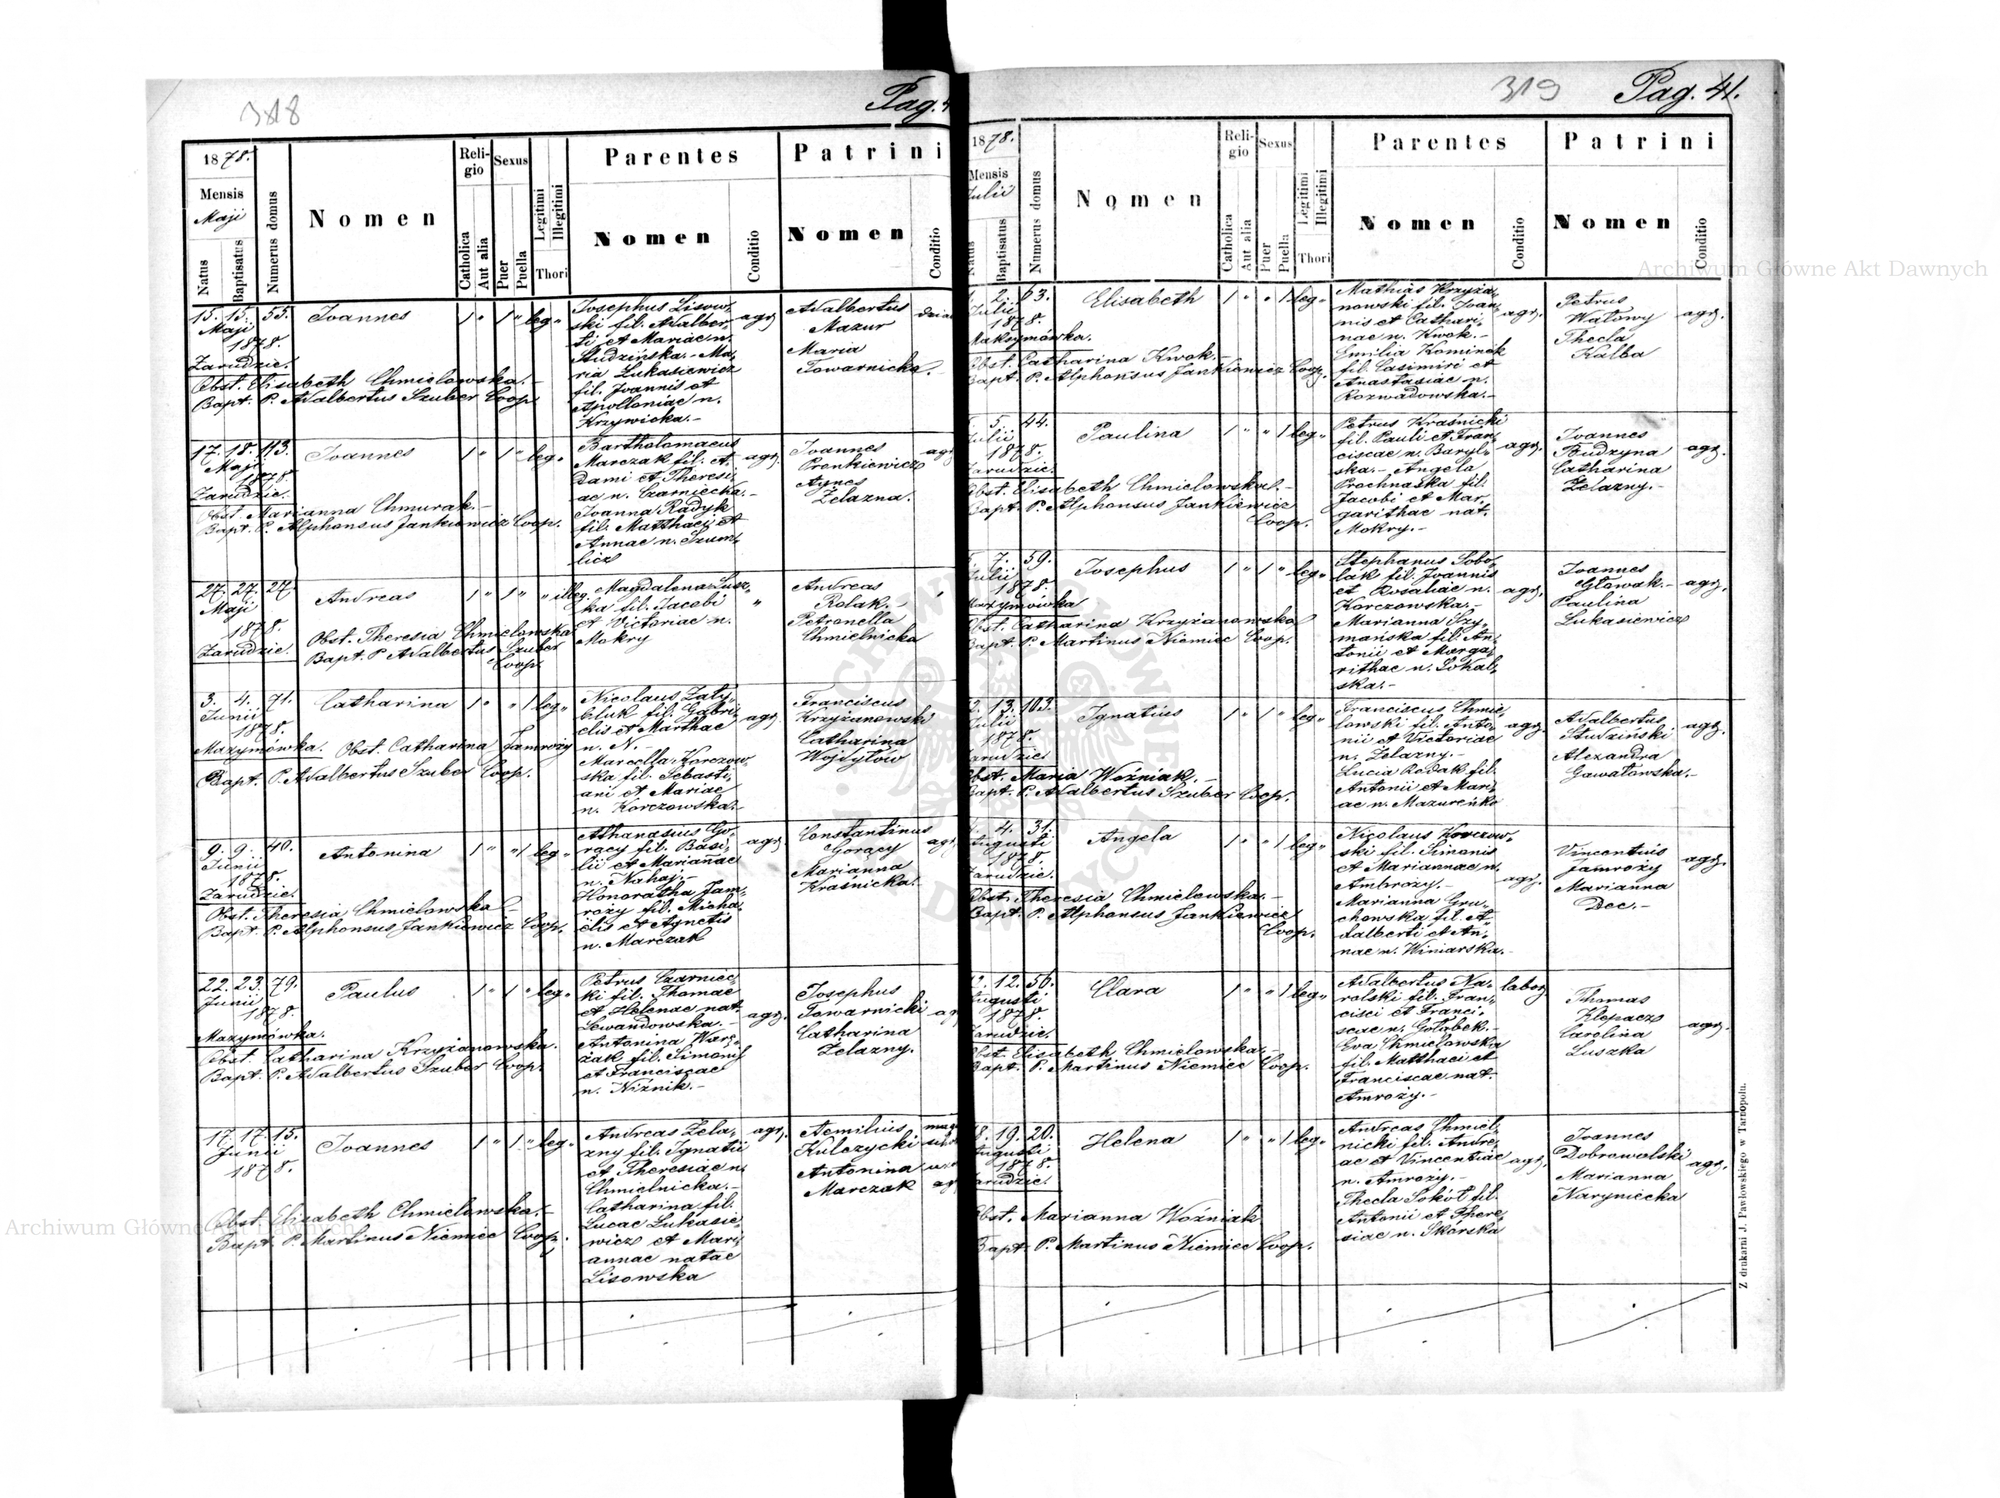 318
Pag. 4
1878.
Mensis
Maji
Natus
Baptisatus
Numerus domus
Nomen
Religio
Catholica
Aut alia
Sexus
Puer
Puella
Legitimi
Illegitimi
Thori
Parentes
Nomen
Conditio
Patrini
Nomen
Conditio
15. 15. 55.
Maji
1878.
Zarudzie.
Joannes
1 " 1 " leg "
Josephus Lisow-
ski fil. Adalber-
ti et Mariae n.
Studzińska.- Ma-
ria Łukasiewicz
fil. Joannis et
Apolloniae n.
Krzywicka.-
agr.
Adalbertus
Mazur
Maria
Towarnicka.-
Obst. Elisabeth Chmielowska.-
Bapt. P. Adalbertus Szuber Coop.
17. 18. 113.
Maji
1878.
Zarudzie.
Joannes
1 " 1 " leg "
Bartholomaeus
Marczak fil. A-
dami et Theresi-
ae n. Czarniecka.-
Joanna Radyk
fil. Matthaei et
Annae n. Szum-
licz
agr.
Joannes
Prenkiewicz
Agnes
Żelazna.
agr.
Obst. Marianna Chmurak.-
Bapt. P. Alphonsus Jankiewicz Coop.
27. 27. 27.
Maji
1878.
Zarudzie.
Andreas
1 " 1 " " illeg.
Magdalena Łusz-
ka fil. Jacobi
et Victoriae n.
Mokry
"
Andreas
Rolak.-
Petronella
Chmielnicka
Obst. Theresia Chmielowska
Bapt. P. Adalbertus Szuber
Coop.
3. 4. 71.
Junii
1878.
Mazymówka.
Catharina
1 " " 1 leg "
Nicolaus Zaty-
bluk fil. Gabri-
elis et Marthae
n. N.-
Marcella Korczow-
ska fil. Sebasti-
ani et Mariae
n. Korczowska.-
agr.
Franciscus
Krzyżanowski
Catharina
Wojdyłów
Obst. Catharina Jamroży
Bapt. P. Adalbertus Szuber Coop.
9. 9. 40.
Junii
1878.
Zarudzie.
Antonina
1 " " 1 leg "
Athanasius Go-
rący fil. Basi-
lii et Marianae
n. Nahaj.-
Honoratha Jam-
roży fil. Micha-
elis et Agnetis
n. Marczak
agr.
Constantinus
Gorący
Marianna
Kraśnicka.
agr.
Obst. Theresia Chmielowska
Bapt. P. Alphonsus Jankiewicz Coop.
22. 23. 79.
Junii
1878.
Mazymówka.
Paulus
1 " 1 " leg "
Petrus Czarniec-
ki fil. Thomae
et Helenae nat.
Lewandowska.-
Antonina War-
żak fil. Simonis
et Franciscae
n. Niżnik.-
agr.
Josephus
Towarnicki
Catharina
Żelazny.
Obst. Catharina Krzyżanowska.
Bapt. P. Adalbertus Szuber Coop.
17. 17. 15.
Junii
1878.
Joannes
1 " 1 " leg "
Andreas Żela-
zny fil. Ignatii
et Theresiae n.
Chmielnicka.-
Catharina fil.
Lucae Łukasie-
wicz et Mari-
annae natae
Lisowska
agr.
Aemilius
Kulczycki
Antonina
Marczak
Obst. Elisabeth Chmielowska.-
Bapt. P. Martinus Niemiec Coop.
319
Pag. 41.
1878.
Mensis
Julii
Natus
Baptisatus
Numerus domus
Nomen
Religio
Catholica
Aut alia
Sexus
Puer
Puella
Legitimi
Illegitimi
Thori
Parentes
Nomen
Conditio
Patrini
Nomen
Conditio
2. 63.
Julii
1878.
Maksymówka.
Elisabeth
1 " " 1 leg "
Mathias Krzyża-
nowski fil. Joan-
nis et Cathari-
nae n. Kwok.-
Emilia Kominek
fil. Casimiri et
Anastasiae n.
Rozwadowska.-
agr.
Petrus
Watowy
Thecla
Kalba
agr.
Obst. Catharina Kwok.-
Bapt. P. Alphonsus Jankiewicz Coop.
5. 44.
Julii
1878.
Zarudzie.
Paulina
1 " " 1 leg "
Petrus Kraśnicki
fil. Pauli et Fran-
ciscae n. Baryl-
ska.- Angela
Prochnaska fil.
Jacobi et Mar-
garithae nat.
Mokry.-
agr.
Joannes
Budzyna
Catharina
Żelazny.-
agr.
Obst. Elisabeth Chmielowska.-
Bapt. P. Alphonsus Jankiewicz
Coop.
7. 59.
Julii
1878.
Mazymówka
Josephus
1 " 1 " leg "
Stephanus Sobo-
lak fil. Joannis
et Rosaliae n.
Korczowska.-
Marianna Szy-
mańska fil. An-
tonii et Marga-
rithae n. Sokal-
ska.-
agr.
Joannes
Głowak.-
Paulina
Łukasiewicz
agr.
Obst. Catharina Krzyżanowska
Bapt. P. Martinus Niemiec Coop.
13. 103.
Julii
1878.
Zarudzie.
Ignatius
1 " 1 " leg "
Franciscus Chmie-
lowski fil. Anto-
nii et Victoriae
n. Żelazny.-
Lucia Rodak fil.
Antonii et Mari-
ae n. Mazureńko
agr.
Adalbertus
Studziński
Alexandra
Gawałowska.-
agr.
Obst. Maria Woźniak.-
Bapt. P. Adalbertus Szuber Coop.
4. 31.
Augusti
1878.
Zarudzie.
Angela
1 " " 1 leg "
Nicolaus Korczow-
ski fil. Simonis
et Mariannae n.
Ambroży.-
Marianna Gru-
chowska fil. A-
dalberti et An-
nae n. Winiarska.-
agr.
Vincentius
Jamroży
Marianna
Dec.-
agr.
Obst. Theresia Chmielowska.-
Bapt. P. Alphonsus Jankiewicz
Coop.
12. 56.
Augusti
1878.
Zarudzie.
Clara
1 " " 1 leg "
Adalbertus Na-
rolski fil. Fran-
cisci et Franci-
scae n. Gołąbek.-
Eva Chmielowska
fil. Matthaei et
Franciscae nat.
Amroży.-
labor.
Thomas
Klepacz
Carolina
Łuszka
agr.
Obst. Elisabeth Chmielowska.-
Bapt. P. Martinus Niemiec Coop.
18. 19. 20.
Augusti
1878.
Zarudzie.
Helena
1 " " 1 leg "
Andreas Chmiel-
nicki fil. Andre-
ae et Vincentiae
n. Amroży.-
Thecla Sokół fil.
Antonii et There-
siae n. Skórska
agr.
Joannes
Dobrowolski
Marianna
Naryniecka
agr.
Obst. Marianna Woźniak
Bapt. P. Martinus Niemiec Coop.
Z drukarni J. Pawłowskiego w Tarnopolu.
Archiwum Główne Akt Dawnych
Archiwum Główne Akt Dawnych